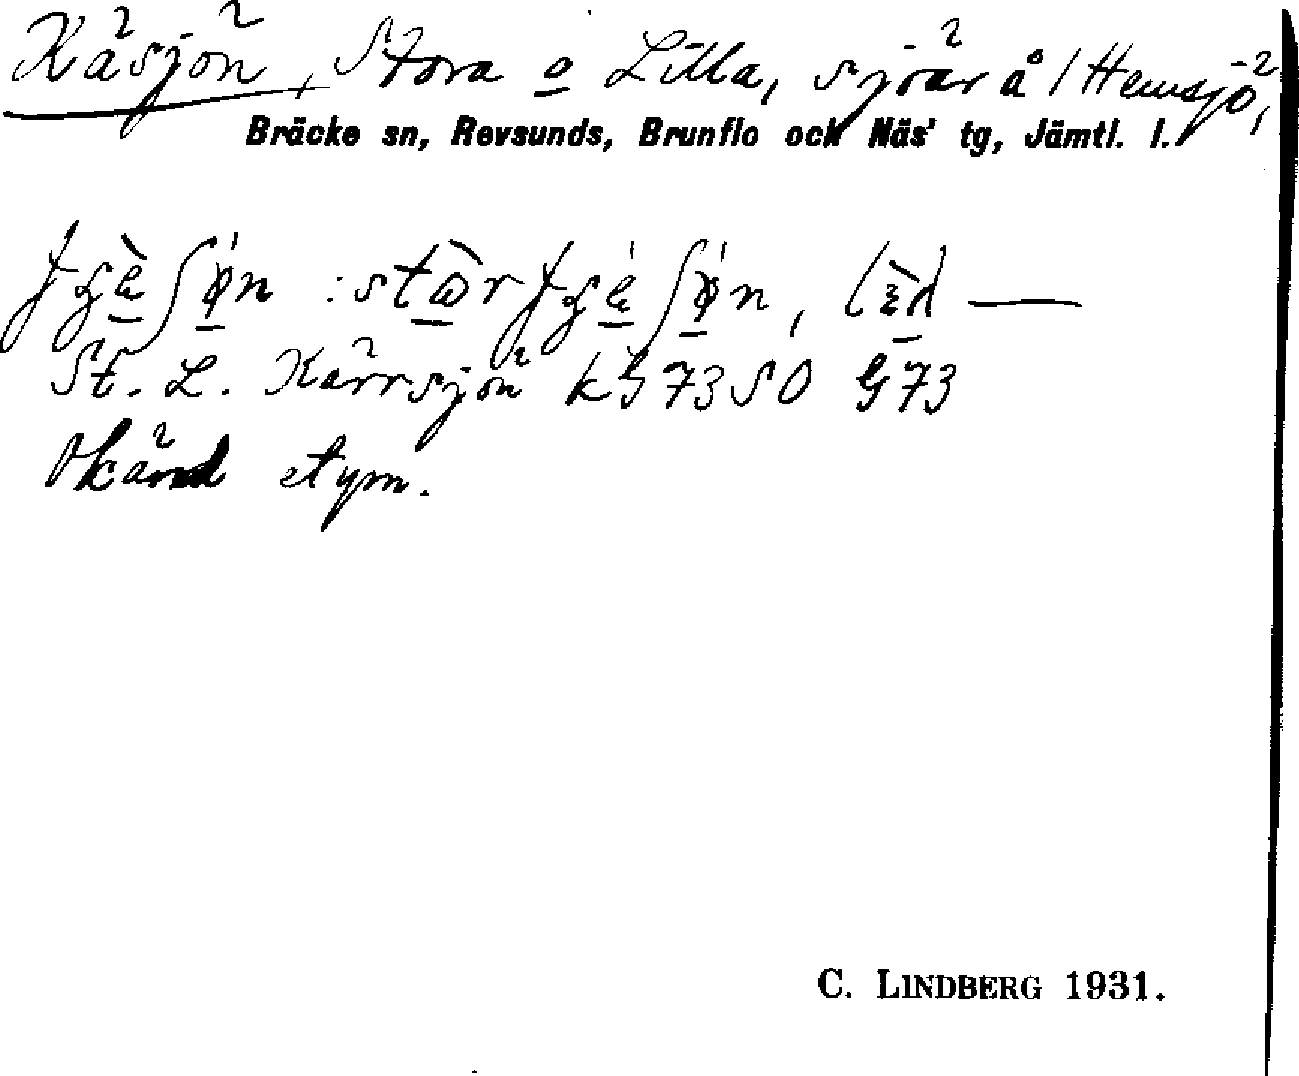 Käsjön, Stora o Lilla, sjöar å /Hemsjö,
Bräcke sn, Revsunds, Brunflo och Näs' tg, Jämtl. l.
St. L. Kärrsjön kG73SO G73
Okänd etym.
C. LINDBERG 1931.